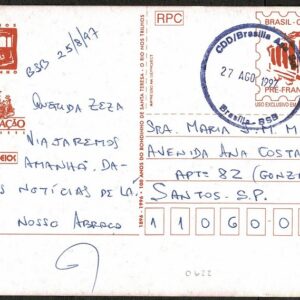 RPC
BRASIL - C
CDD/Brasília
27 AGO 1997
Brasília - BSB
PRÉ-FRAN
USO EXCLUSIVO EM
1896 - 1996 - 100 ANOS DO BONDINHO DE SANTA TERESA - O RIO NOS TRILHOS
BSB 25/8/97
Querida Zeza
Viajaremos
amanhã. Da-
s notícias de lá.
Nosso Abraço
Sra. Maria S.M.M
Avenida Ana Costa
Apte 82 (Gonz
Santos - S.P.
11060